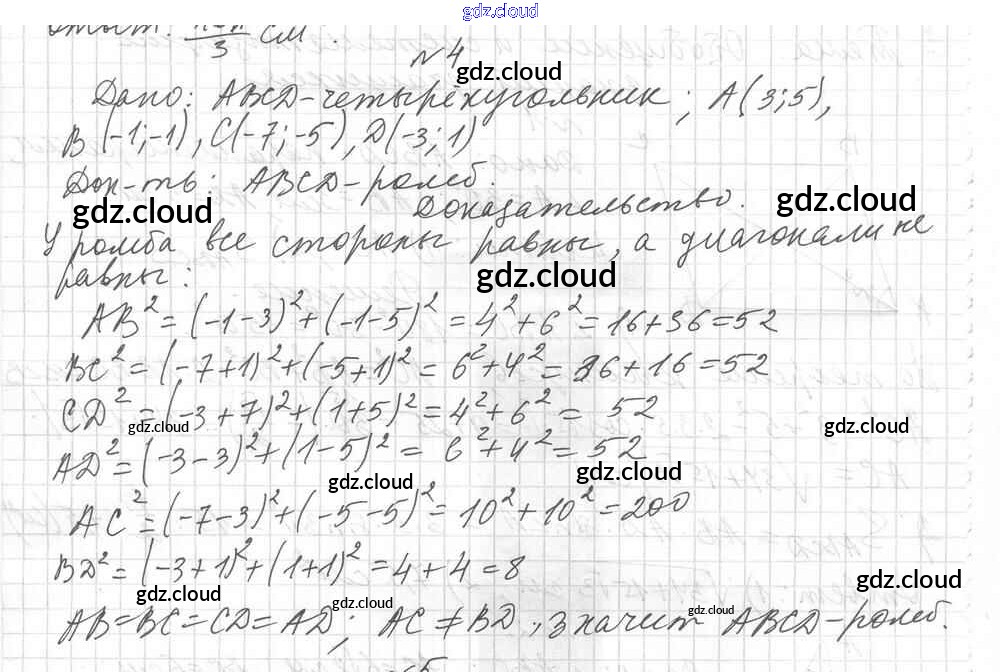 gdz.cloud
см.
N4
gdz.cloud
Дано: ABCD-четырёхугольник; A(3;5),
B(-1;-1), C(-7;-5), D(-3;1)
Док-ть: ABCD-ромб.
gdz.cloud
Доказательство.
gdz.cloud
У ромба все стороны равны, а диагонали не
равны:
gdz.cloud
AB² = (-1-3)²+(-1-5)² = 4²+6² = 16+36=52
BC² = (-7+1)²+(-5+1)² = 6²+4² = 36+16=52
CD² = (-3+7)²+(1+5)² = 4²+6² = 52
gdz.cloud
gdz.cloud
AD² = (-3-3)²+(1-5)² = 6²+4² = 52
gdz.cloud
gdz.cloud
AC² = (-7-3)²+(-5-5)² = 10²+10² = 200
BD² = (-3+1)²+(1+1)² = 4+4=8
gdz.cloud
gdz.cloud
gdz.cloud
gdz.cloud
AB=BC=CD=AD; AC≠BD, значит ABCD-ромб.